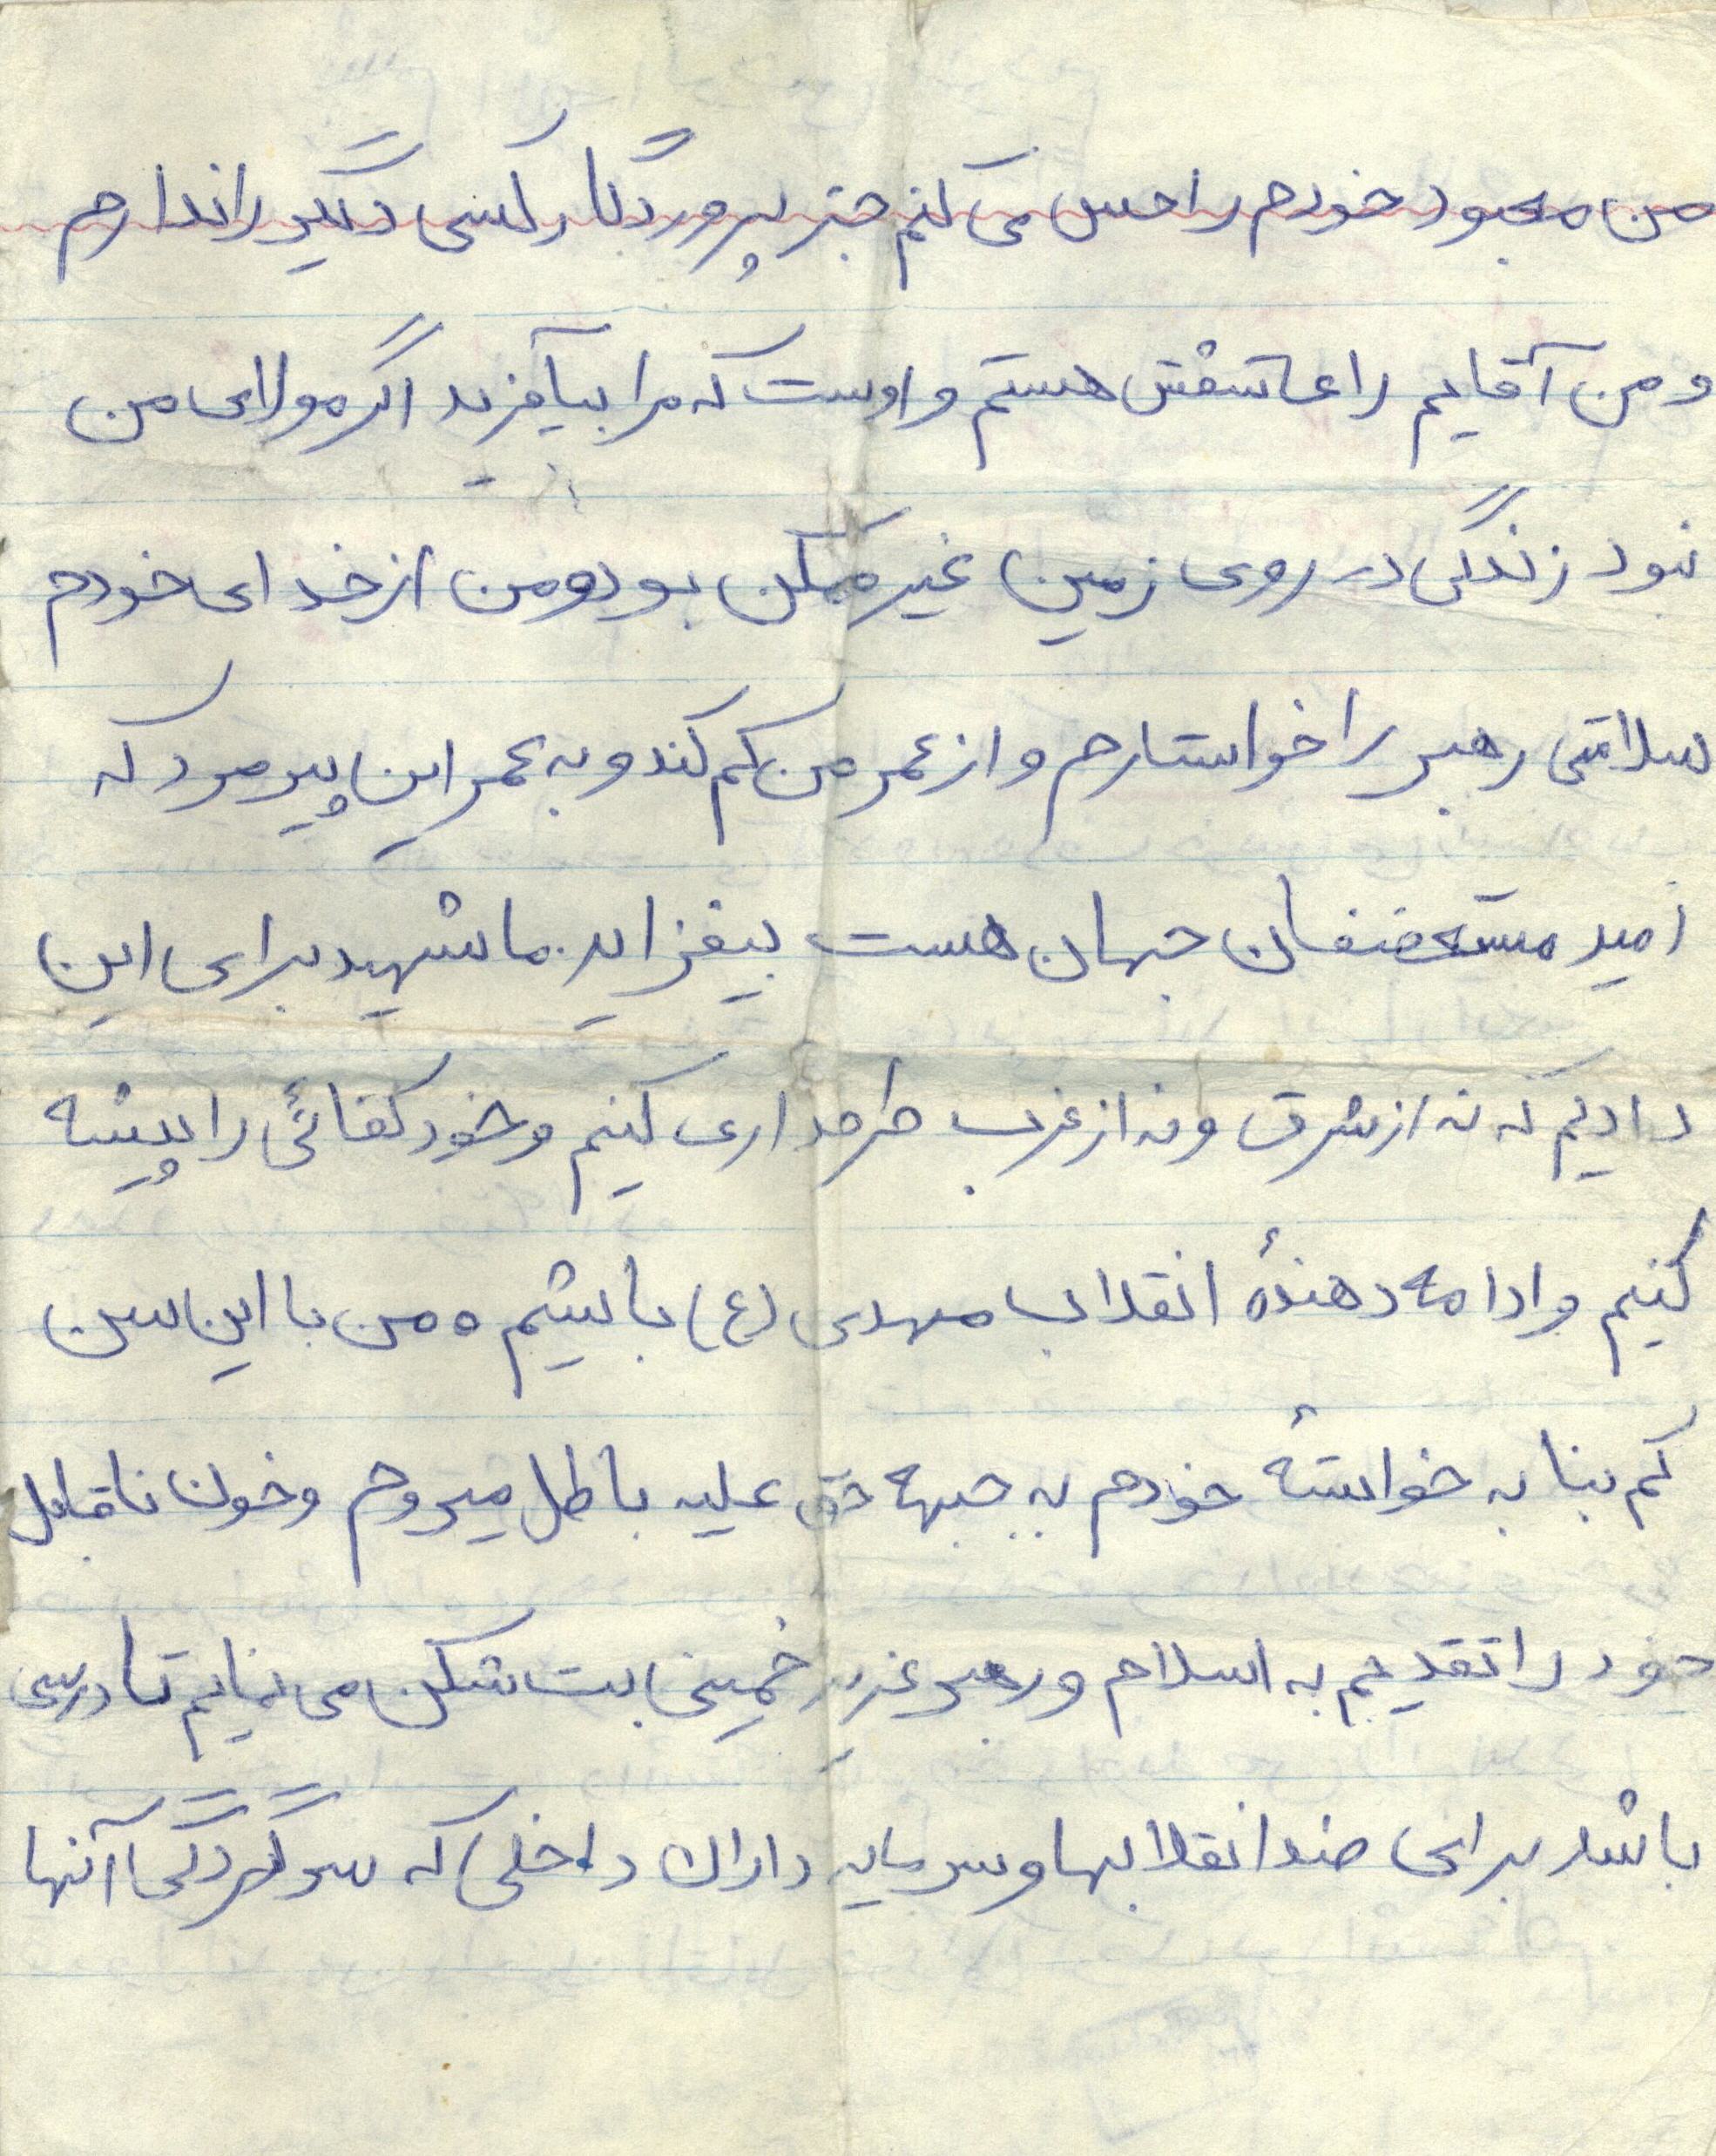 من معبود خودم را حس می کنم جز پروردگار کسی دیگر را ندارم
و من آقایم را عاشقش هستم و اوست که مرا بیآفرید اگر مولای من
نبود زندگی در روی زمین غیر ممکن بود و من از خدای خودم
سلامتی رهبر را خواستارم و از عمر من کم کند و به عمر این پیر مرد که
امید مستضعفان جهان هست بیفزاید. ما شهید برای این
دادیم که نه از شرق و نه از غرب طرفداری کنیم و خود کفائی را پیشه
کنیم و ادامه دهندهٔ انقلاب مهدی (ع) باشیم ٥ من با این سن
کم بنا به خواستهٔ خودم به جبهه حق علیه باطل میروم و خون ناقابل
خود را تقدیم به اسلام و رهبر عزیز خمینی بت شکن می نمایم تا درسی
باشد برای ضد انقلابها و سرمایه داران داخلی که سرگردگی آنها